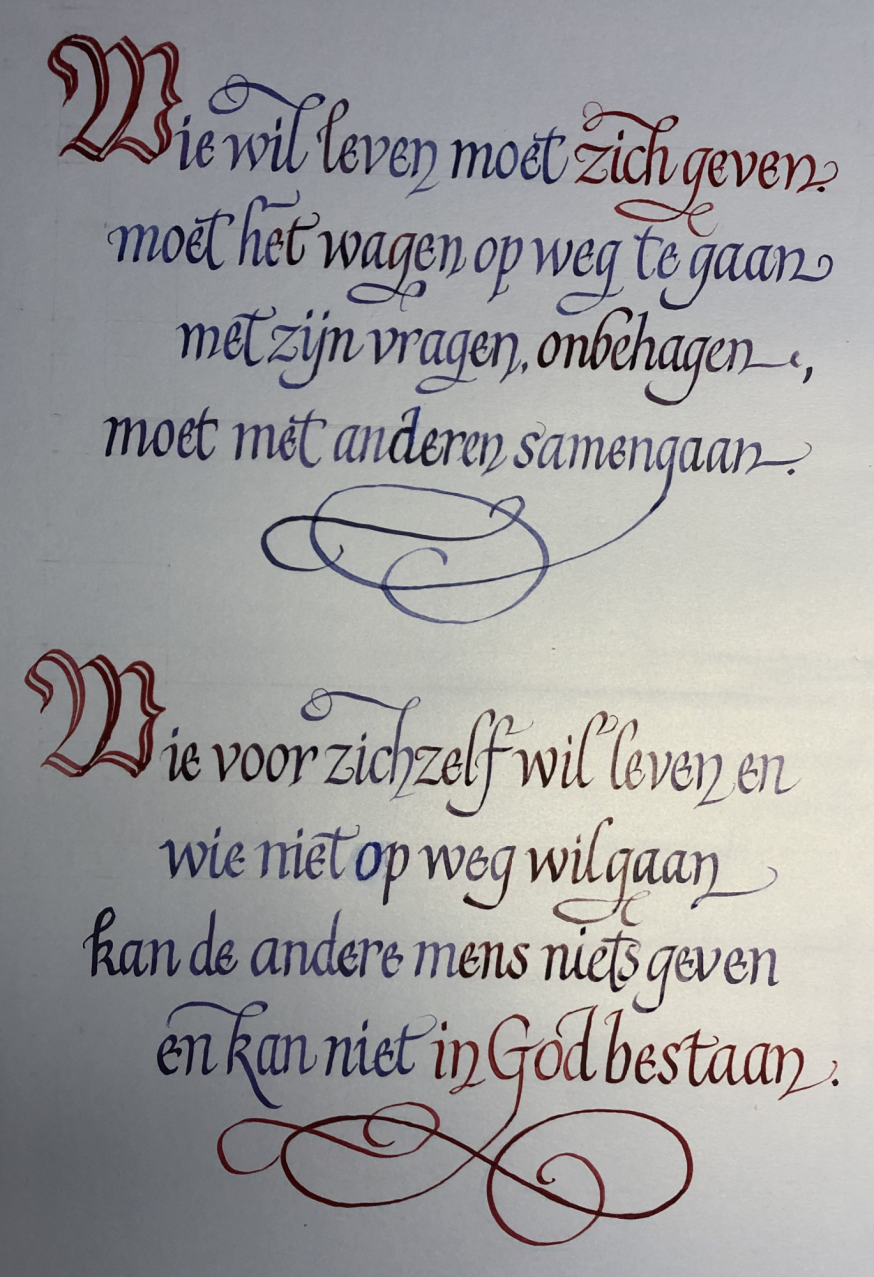 Wie wil leven moet zich geven.
moet het wagen op weg te gaan
met zijn vragen, onbehagen,
moet met anderen samengaan.
Wie voor zichzelf wil leven en
wie niet op weg wil gaan
kan de andere mens niets geven
en kan niet in God bestaan.